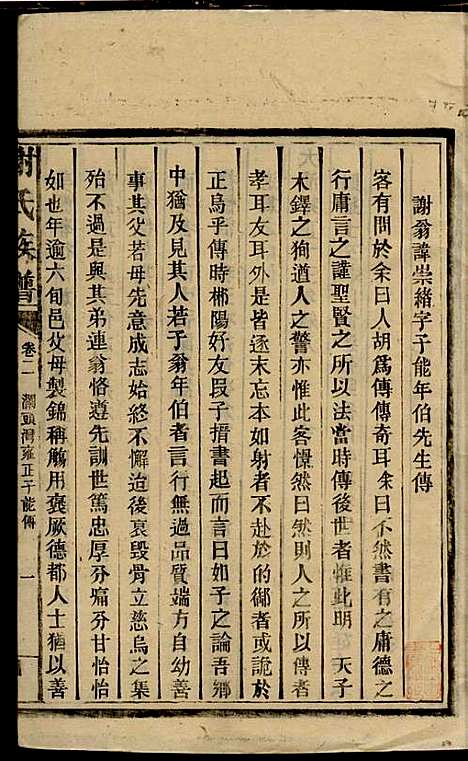 謝翁諱崇緒字子能年伯先生傳
客有問於余曰人胡爲傳傳奇耳余曰不然書有之庸德之
行庸言之謹聖賢之所以法當時傳後世者惟此明 天子
木鐸之狥遒人之警亦惟此客憬然曰然則人之所以傳者
孝耳友耳外是皆逐末忘本如射者不赴於的御者或詭於
正烏乎傳時郴陽好友叚子搢書起而言曰如子之論吾鄉
中猶及見其人若予翁年伯者言行無過品質端方自幼善
事其父若母先意成志始終不懈迨後哀毀骨立慈烏之集
殆不過是與其弟連翁恪遵先訓世篤忠厚分痛分甘怡怡
如也年逾六旬邑父母製錦稱觴用褒厥德都人士猶以善
謝氏族譜
卷二
瀾頭灣雍正子能傳
一